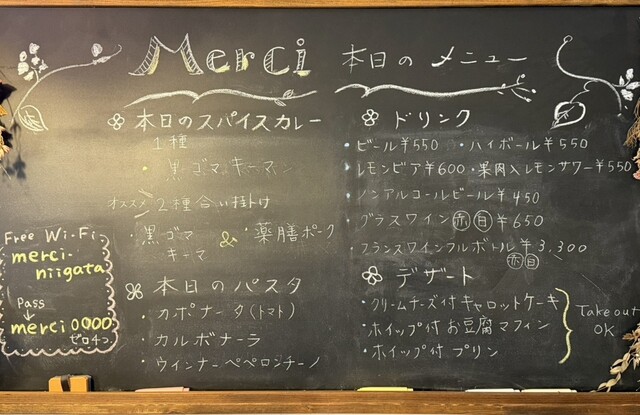 Merci 本日のメニュー
本日のスパイスカレー
1種
・黒ゴマキーマン
オススメ 2種合い掛け
・黒ゴマキーマ & ・薬膳ポーク
本日のパスタ
・カポナータ(トマト)
・カルボナーラ
・ウィンナーペペロンチーノ
ドリンク
・ビール¥550 ・ハイボール¥550
・レモンビア¥600 ・果肉入レモンサワー¥550
・ノンアルコールビール¥450
・グラスワイン 赤 白 ¥650
・フランスワインフルボトル¥3,300
赤 白
デザート
・クリームチーズ付キャロットケーキ
・ホイップ付お豆腐マフィン
・ホイップ付プリン
Take out OK
Free Wi-Fi
merci-
niigata
Pass
↓
merci0000
ゼロ4つ